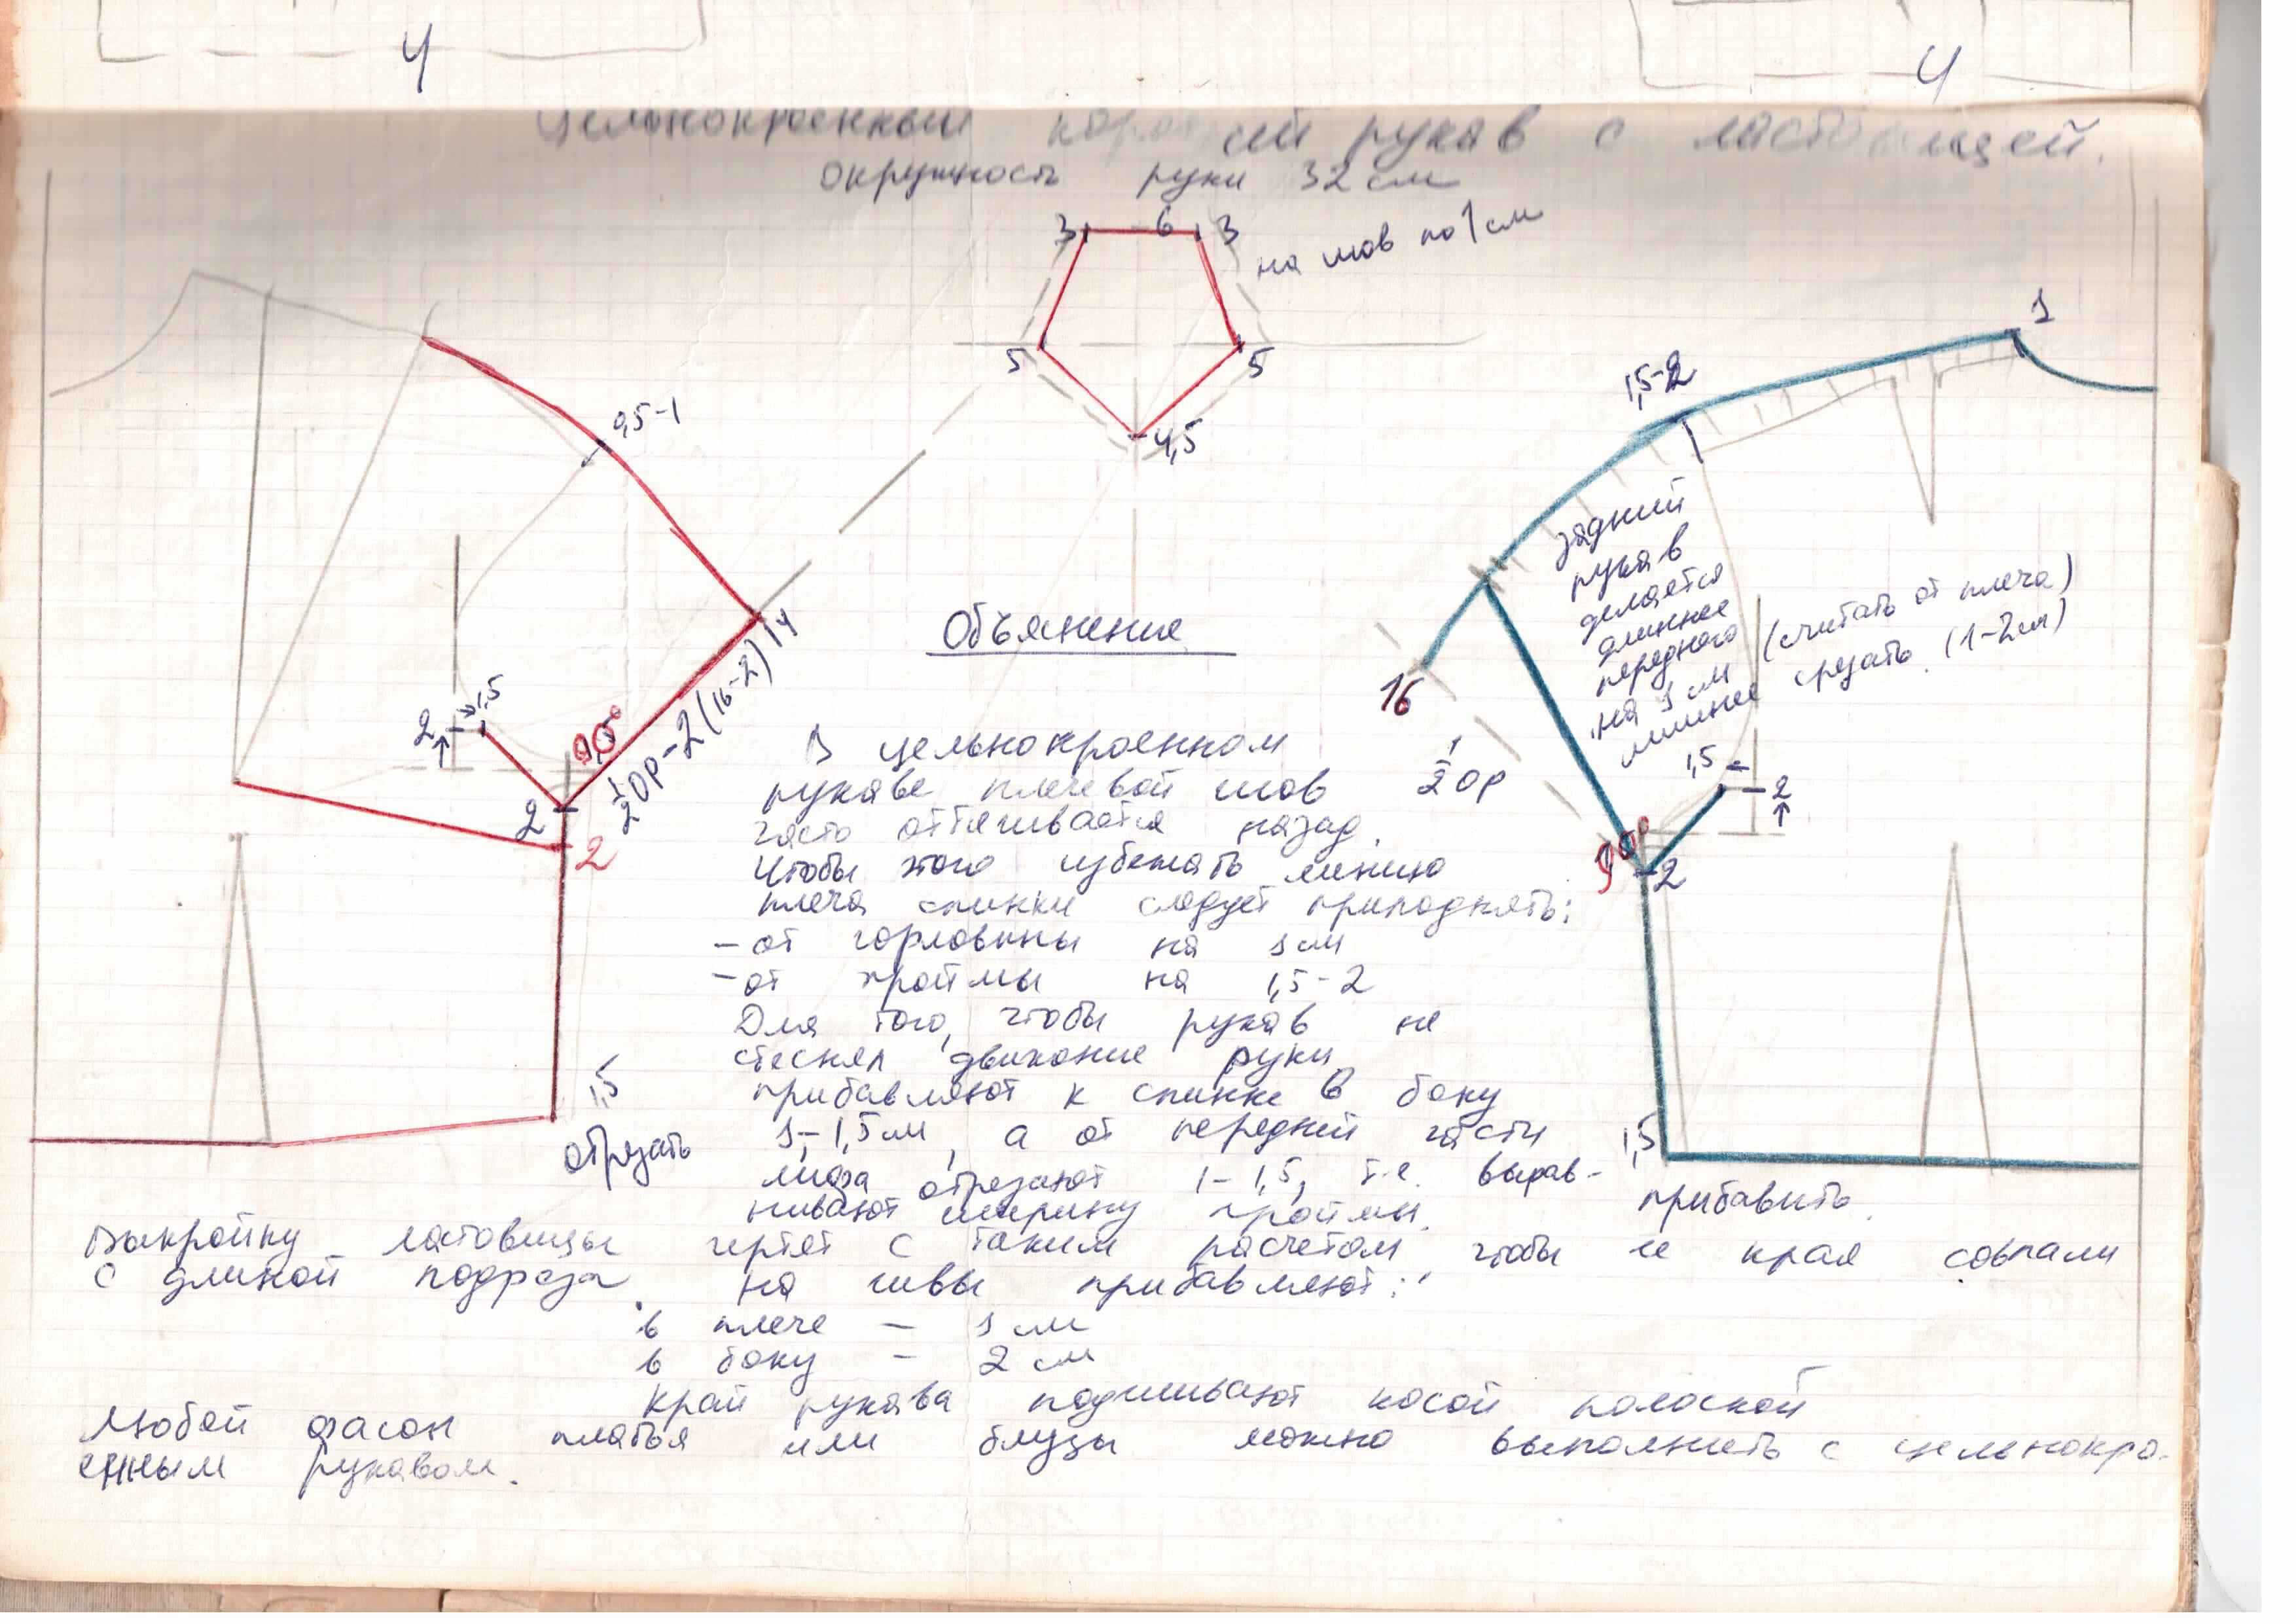 4
4
Цельнокроенный короткий рукав с ластовицей.
окружность руки 32 см
3 6 3
на шов по 1 см
5 5
4,5
1
1,5-2
0,5-1
задний
рукав
делается
длиннее
переднего
на 1 см (считать от плеча)
лишнее срезать. (1-2см)
14
½ ОР-2 (16-2)
90°
2 1,5
2
2
16
½ ОР
1,5
2
90°
2
Объяснение
В цельнокроенном
рукаве плечевой шов
часто оттягивается назад.
Чтобы этого избежать линию
плеча спинки следует приподнять:
- от горловины на 1 см
- от проймы на 1,5-2
Для того, чтобы рукав не
стеснял движение руки
прибавляют к спинке в боку
1-1,5см, а от передней части
лифа отрезают 1-1,5, т.е. вырав-
нивают ширину проймы.
1,5
отрезать
1,5
прибавить.
Выкройку ластовицы чертят с таким расчетом чтобы ее края совпали
с длиной подреза. на швы прибавляют:
в плече - 1 см
в боку - 2 см
Край рукава подшивают косой полоской
Любой фасон платья или блузы можно выполнить с цельнокро-
енным рукавом.